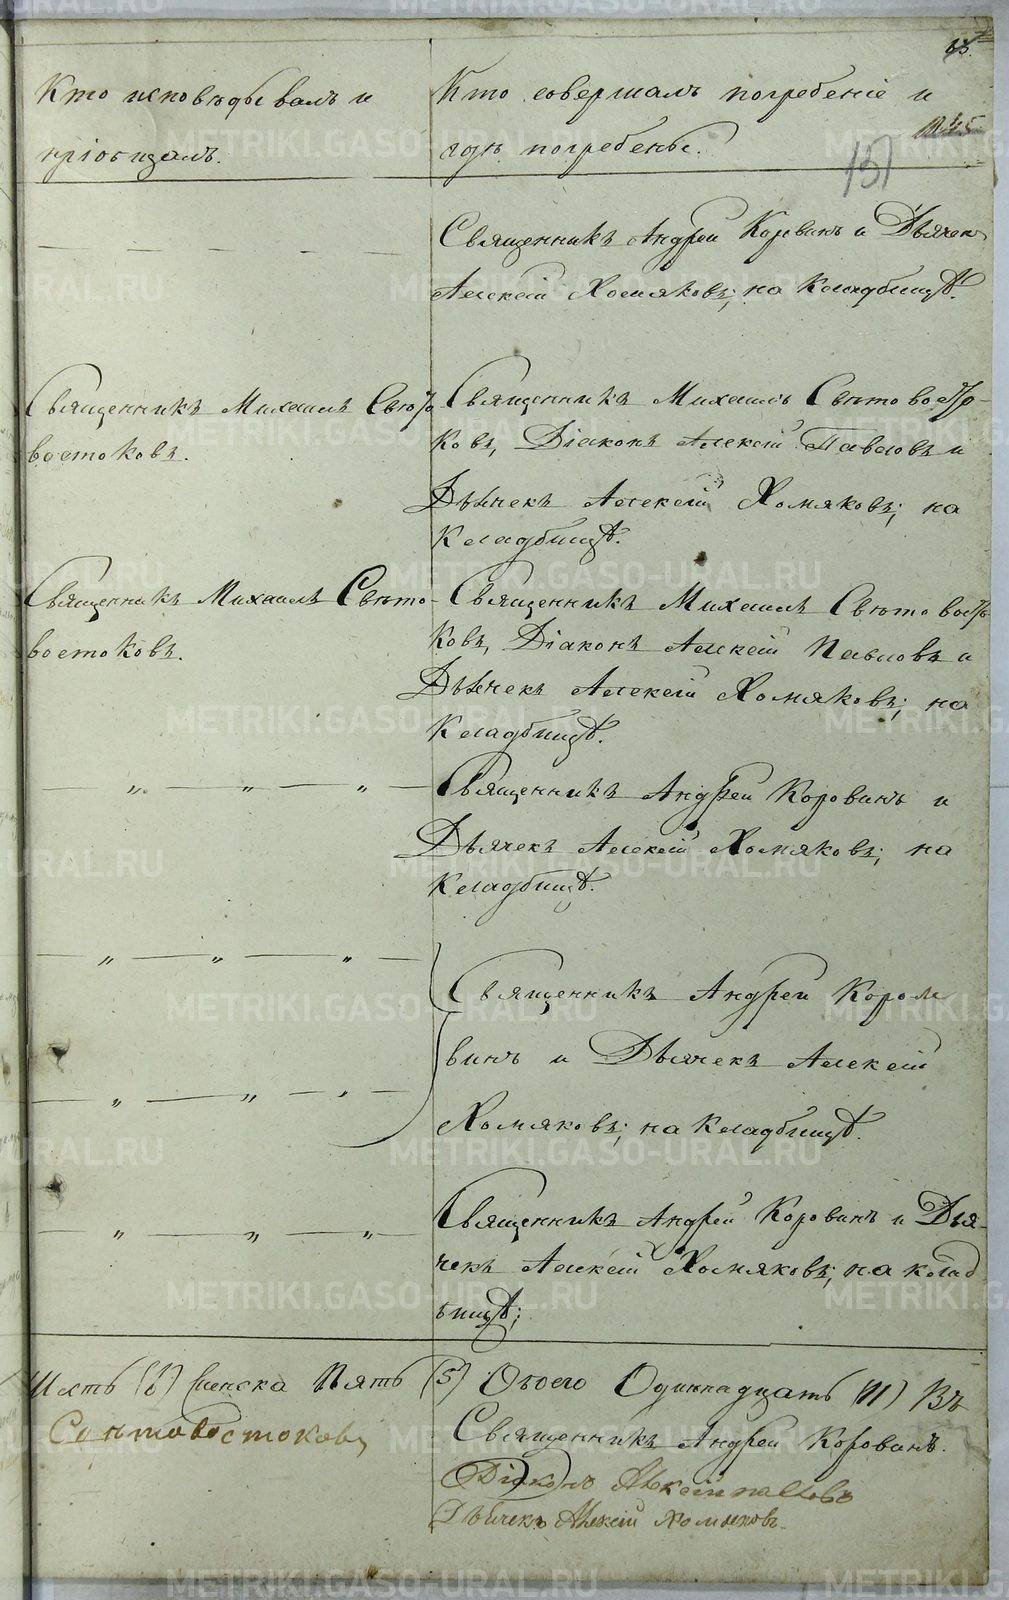 Кто исповѣдывалъ и
пріобщалъ.
Кто совершалъ погребеніе и
гдѣ погребены.
151
Священникъ Андрей Коровинъ и Дьячек
Алексѣй Хомяковъ; на Кладбищѣ.
Священникъ Михаилъ Свѣто
востоковъ.
Священникъ Михаилъ Свѣтовосто-
ковъ, Діаконъ Алексѣй Павловъ и
Дьячекъ Алексѣй Хомяковъ; на
Кладбищѣ.
Священникъ Михаилъ Свѣто-
востоковъ.
Священникъ Михаилъ Свѣтовосто-
ковъ, Діаконъ Алексѣй Павловъ и
Дьячекъ Алексѣй Хомяковъ; на
Кладбищѣ.
Священникъ Андрей Коровинъ и
Дьячекъ Алексѣй Хомяковъ; на
Кладбищѣ.
Священникъ Андрей Коро
винъ и Дьячекъ Алексѣй
Хомяковъ; на Кладбищѣ.
Священникъ Андрей Коровинъ и Дья-
чекъ Алексѣй Хомяковъ; на клад
бищѣ;
Женска Пять (5) Обоего Одиннадцать (11) Въ
Свѣтовостоковъ
Священникъ Андрей Коровинъ.
Діаконъ Алексѣй Павловъ
Дьячекъ Алексѣй Хомяковъ.
METRIKI.GASO-URAL.RU